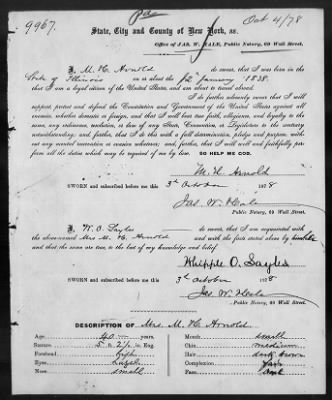 9967.
Oct 4/78
State, City and County of New York, ss.
Office of JAS. W. HALE, Public Notary, 69 Wall Street.
I, M. H. Arnold do swear, that I was born in the
State of Illinois on or about the 12 January 1838.
that I am a loyal citizen of the United States, and am about to travel abroad.
I do further solemnly swear that I will
support, protect and defend the Constitution and Government of the United States against all
enemies, whether domestic or foreign, and that I will bear true faith, allegiance, and loyalty to the
same, any ordinance, resolution, or law of any State, Convention, or Legislature to the contrary
notwithstanding; and further, that I do this with a full determination, pledge and purpose, without
any mental reservation or evasion whatever; and, further, that I will well and faithfully per-
form all the duties which may be required of me by law. SO HELP ME GOD.
M. H. Arnold
SWORN and subscribed before me this
3rd October 1878
Jas. W. Hale
Public Notary, 69 Wall Street.
I, W. O. Sayles do swear, that I am acquainted with
the abovenamed Mrs M. H. Arnold and with the facts stated above by
and that the same are true, to the best of my knowledge and belief.
Whipple O. Sayles
SWORN and subscribed before me this
3rd October 1878
Jas. W. Hale
Public Notary, 69 Wall Street.
DESCRIPTION OF Mrs. M. H. Arnold
Age, 40 years, Mouth, small
Stature, 5 ft. 2 1/2 in. Eng. Chin, medium
Forehead, high Hair, dark brown
Eyes, hazel Complexion, fair
Nose, small Face,